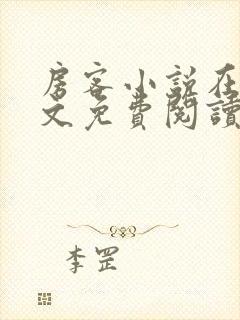 房客小說在
文免費閱讀
李罡